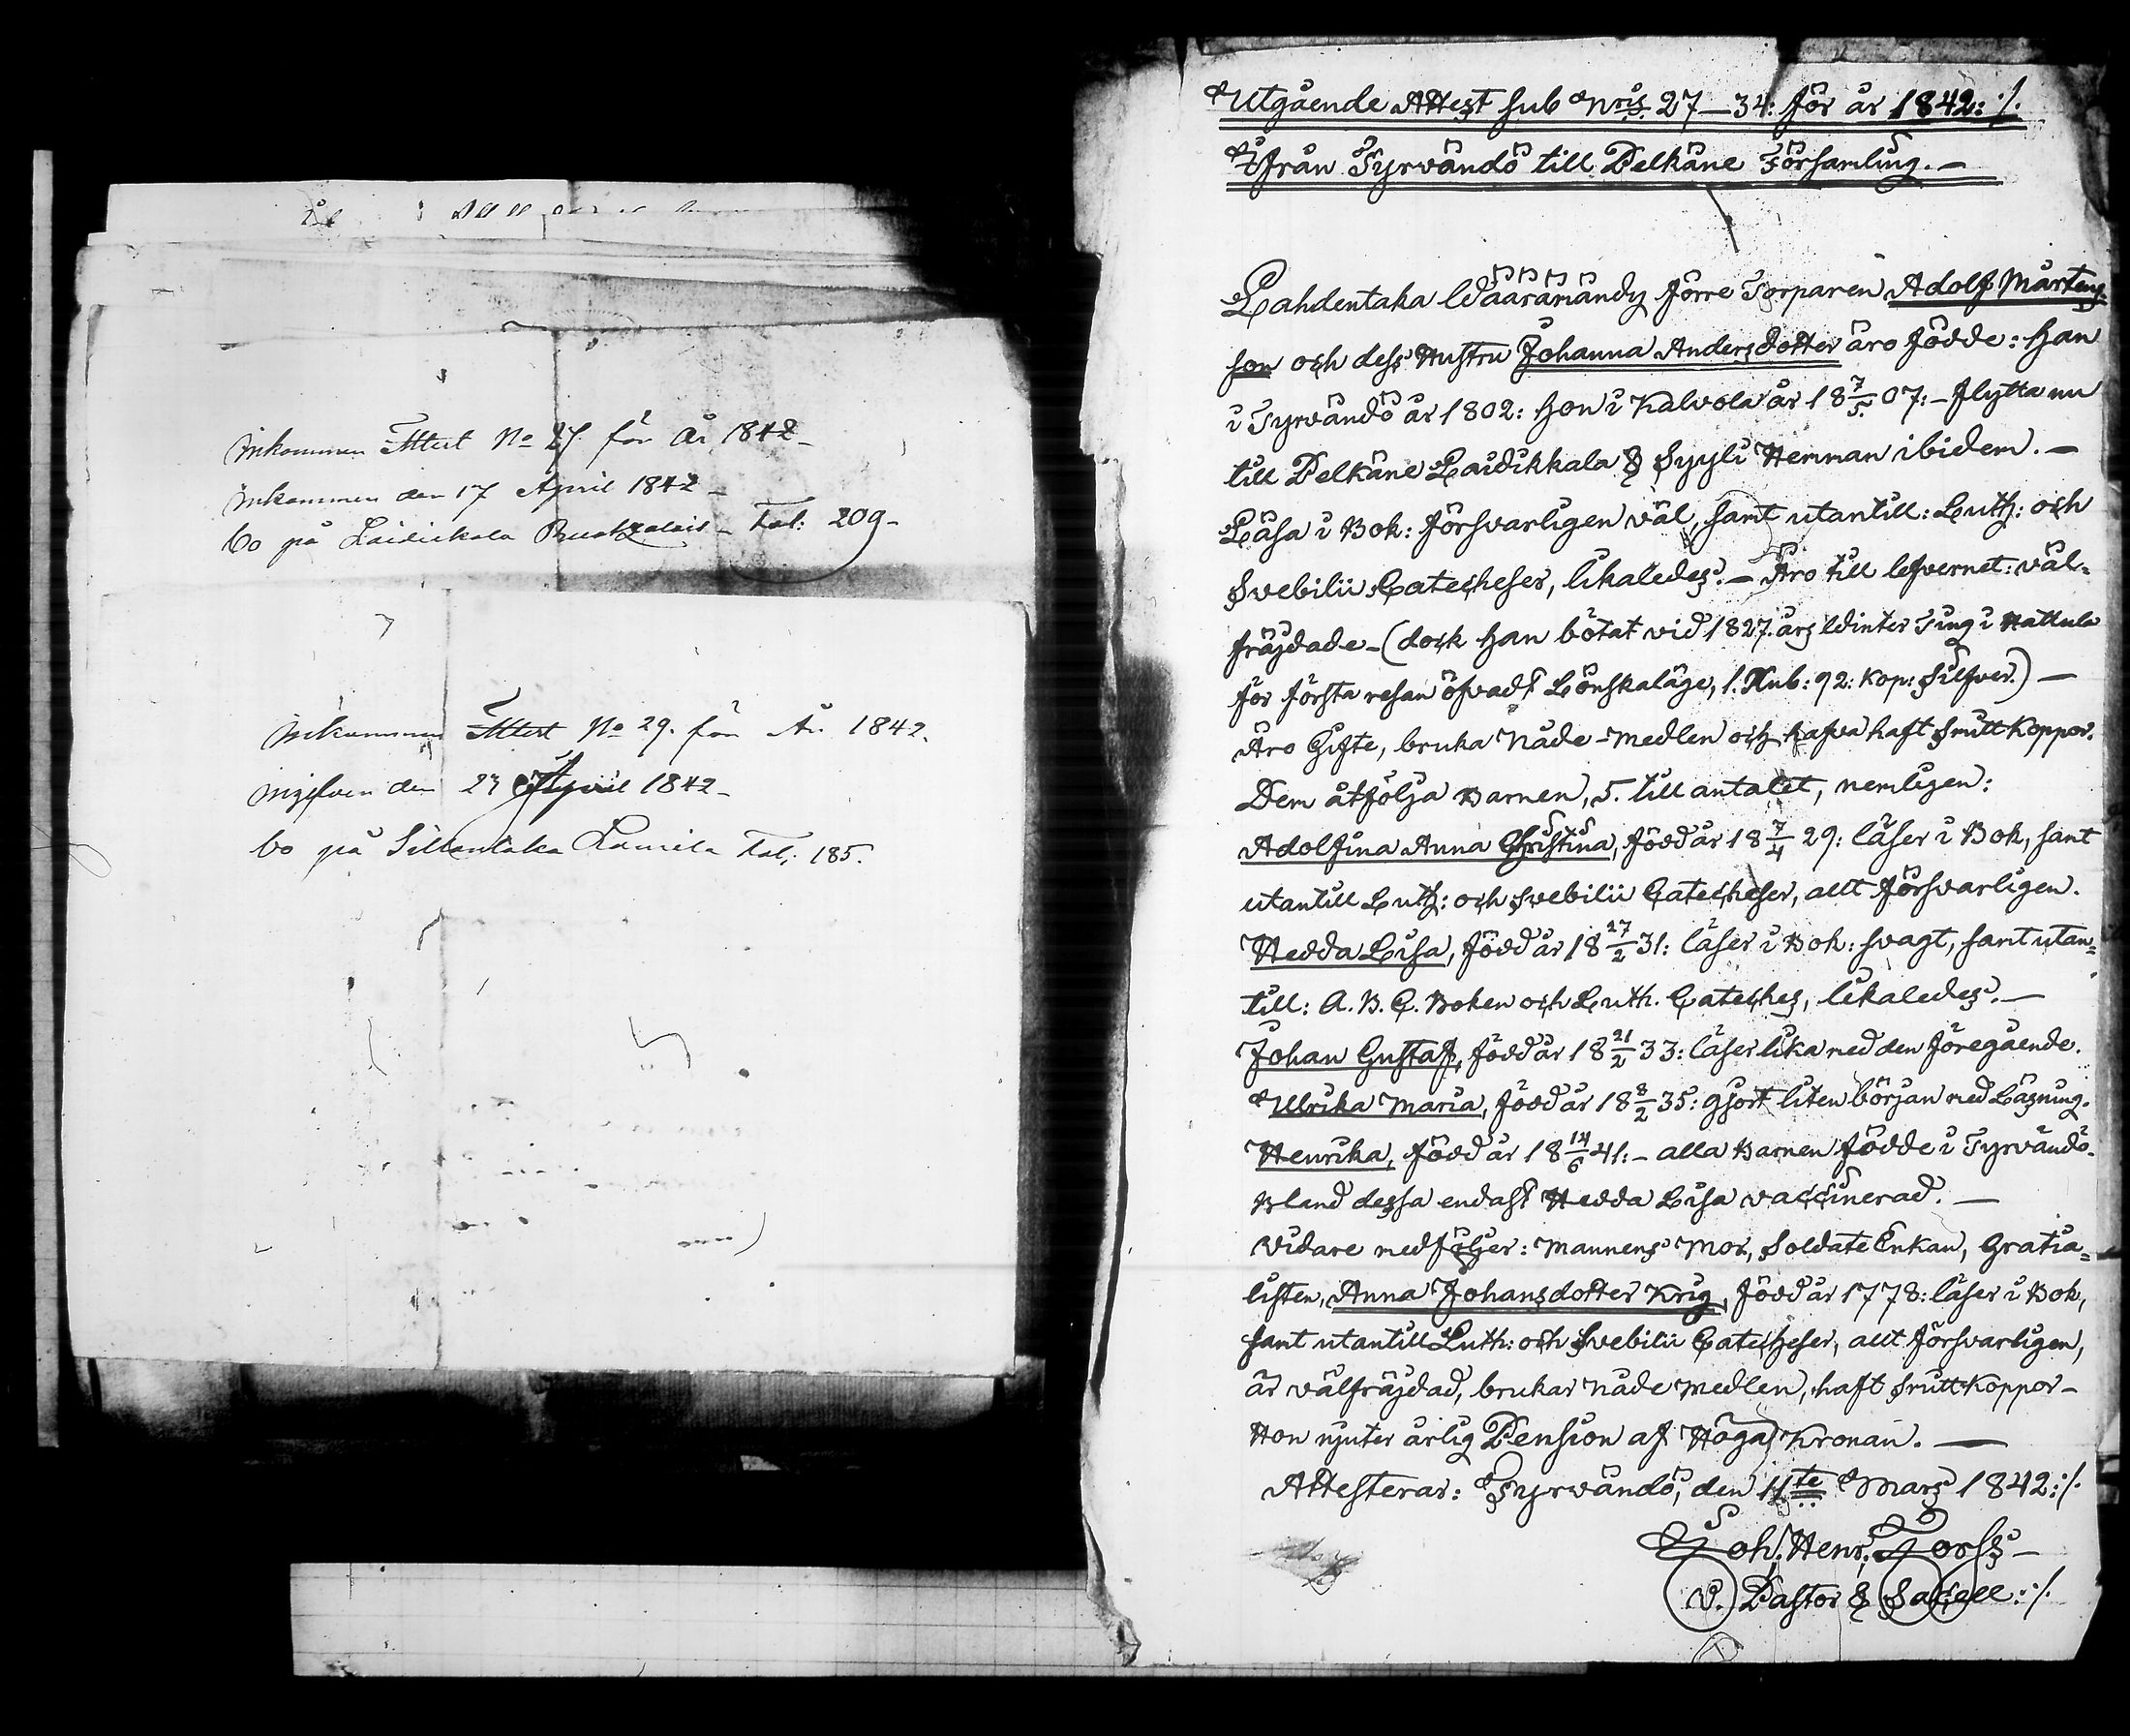 Inkommen Attest No 27. för År 1842-
Inkommen den 17 April 1842-
bo på Laidickala - Fol: 209-
Inkommen Attest No 29. för År 1842.
ingifven den 23 April 1842-
bo på Sillantaka Fol: 185.
Utgående Attest sub Nris 27-34: för år 1842:/.
Ifrån Tyrvändö till Pelkäne Församling.-
Lahdentaka Wäärämändz förre Torparen Adolf Mårtens-
son och dess Hustru Johanna Andersdotter äro födde: han
i Tyrvändö år 1802: hon i Kalvola år 18 7/5 07:- flytta nu
till Pelkäne Laidikkala & Syyli Hemman ibidem.-
Läsa i Bok: försvarligen väl, samt utantill: Luth: och
Svebilii Catecheser, likaledes.- Äro till lefvernet: väl-
fräjdade-(dock han bötat vid 1827. års Winter Ting i Hattula
för första resan öfvadt Lönskaläge, 1. Rub: 92: kop: Silfver.)-
Äro Gifte, bruka Nåde-medlen och hafva haft Smittkoppor.
Dem åtfölja Barnen, 5. till antalet, nemligen:
Adolfina Anna Christina, född år 18 7/4 29: läser i Bok, samt
utantill Luth: och Svebilii Catecheser, allt försvarligen.
Hedda Lisa, född år 18 27/2 31: läser i Bok: svagt, samt utan-
till: A.B.C. Boken och Luth. Cateches, likaledes.-
Johan Gustaf, född år 18 21/2 33: läser lika med den föregående.
Ulrika Maria, född år 18 8/2 35: gjort liten början med Läsning.
Henrika, född år 18 14/6 41:- alla Barnen födde i Tyrvändö.
Bland dessa endast Hedda Lisa vaccinerad.-
Vidare medföljer: Mannens Mor, Soldate Enkan, Gratia-
listen, Anna Johansdotter Krig, född år 1778: läser i Bok,
samt utantill Luth: och Svebilii Catecheser, allt försvarligen,
är välfräjdad, brukar Nåde medlen, haft Smittkoppor-
Hon njuter årlig Pension af Höga Kronan.-
Attesterar: Tyrvändö, den 11te Mars 1842:/.
Joh. Henr. Forss-
V. Pastor & Sacell:/.